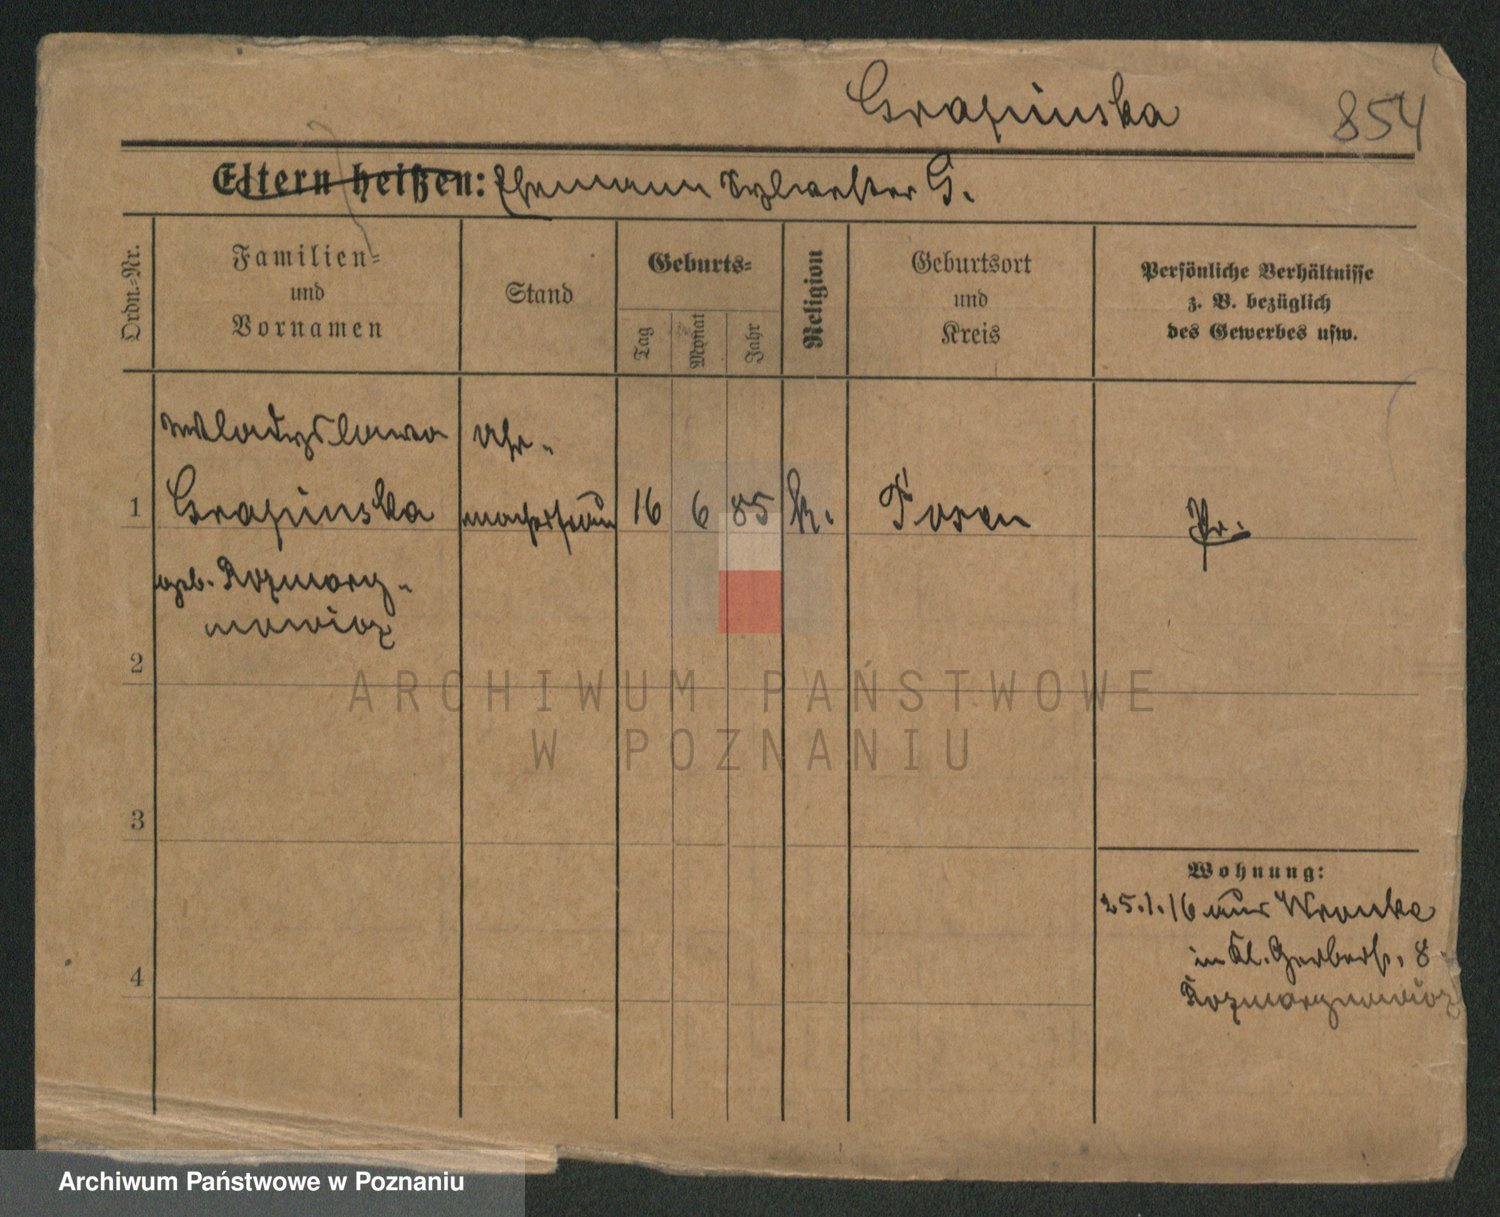 Grazinska
854
Eltern heißen: Ehemann Sylvester G.
Ordn.-Nr.
Familien-
und
Vornamen
Stand
Geburts-
Tag
Monat
Jahr
Religion
Geburtsort
und
Kreis
Persönliche Verhältnisse
z. B. bezüglich
des Gewerbes usw.
Wladyslawa
Uhr-
1 Grazinska macherfrau 16 6 85 k. Posen Pr.
geb. Rozmary-
nowicz
2
3
4
Wohnung:
25.1.16 aus Wronke
in Kl. Gerberstr. 8
Rozmarynowicz
ARCHIWUM PAŃSTWOWE
W POZNANIU
Archiwum Państwowe w Poznaniu